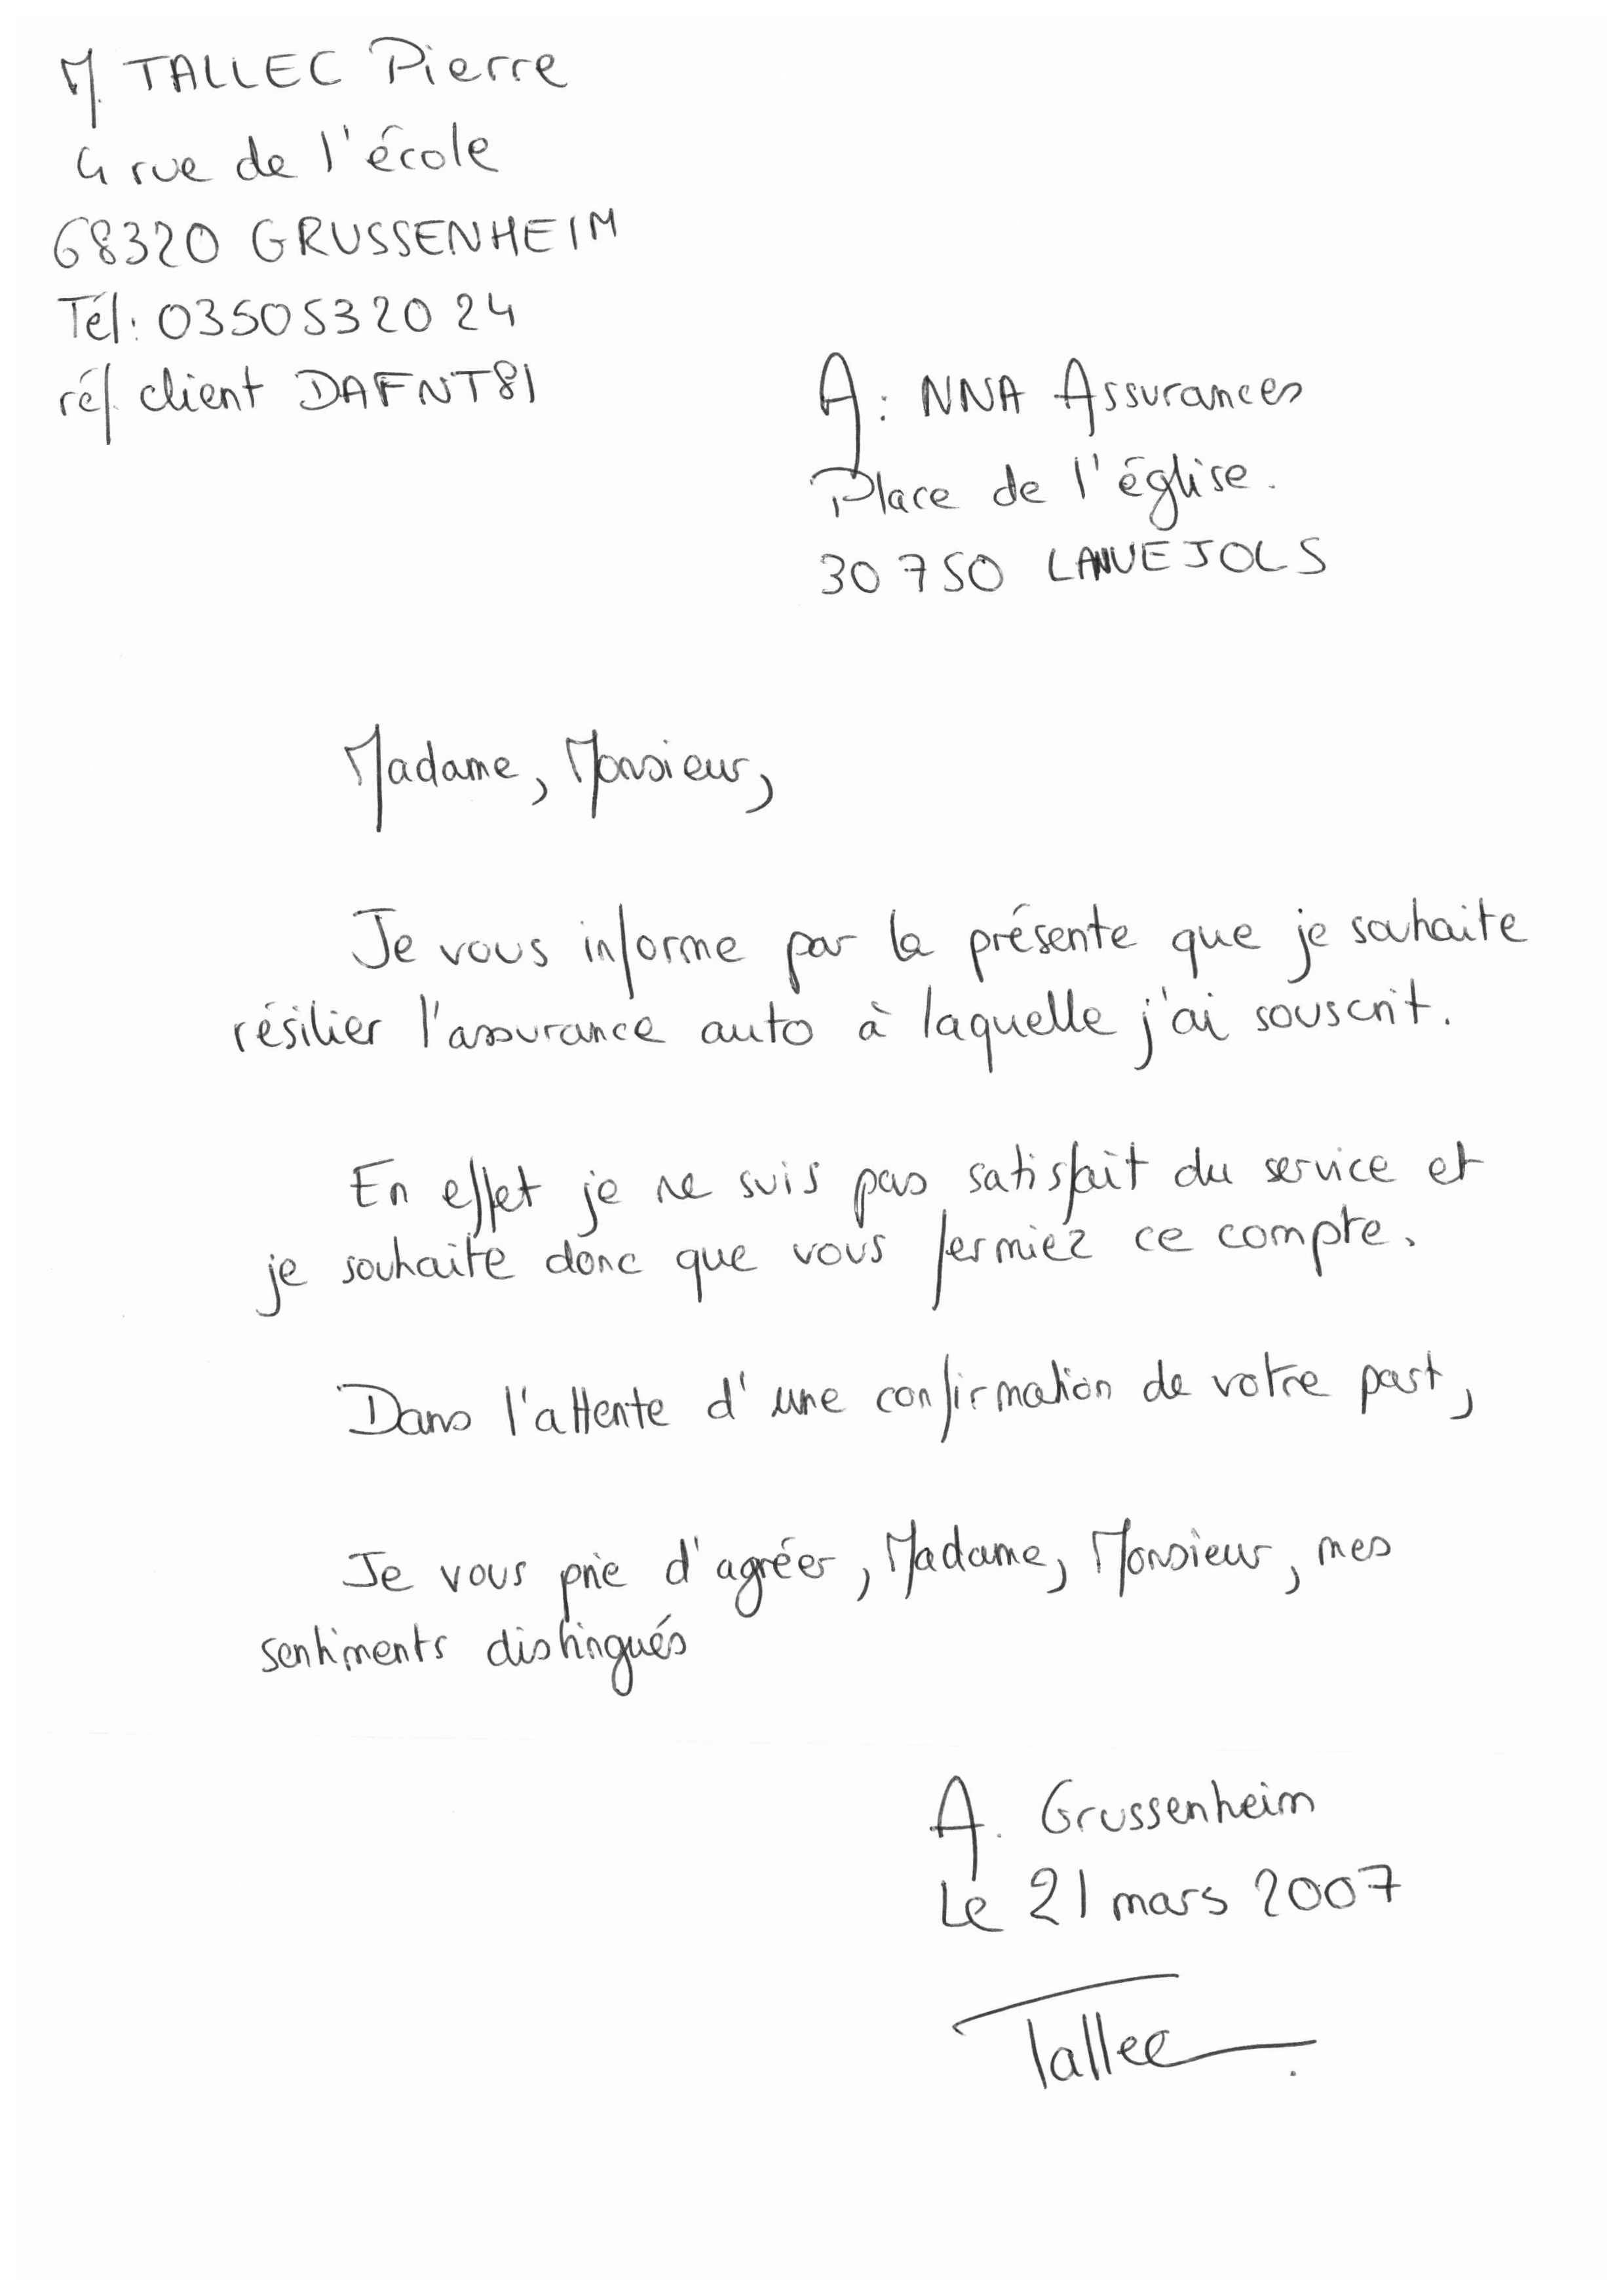 M. TALLEC Pierre
4 rue de l'école
68320 GRUSSENHEIM
Tél: 0350532024
réf. client DAFNT81
A: NNA Assurances
Place de l'église.
30750 LANUEJOLS
Madame, Monsieur,
Je vous informe par la présente que je souhaite
résilier l'assurance auto à laquelle j'ai souscrit.
En effet je ne suis pas satisfait du service et
je souhaite donc que vous fermiez ce compte.
Dans l'attente d'une confirmation de votre part,
Je vous prie d'agréer, Madame, Monsieur, mes
sentiments distingués
A. Grussenheim
Le 21 mars 2007
Tallec